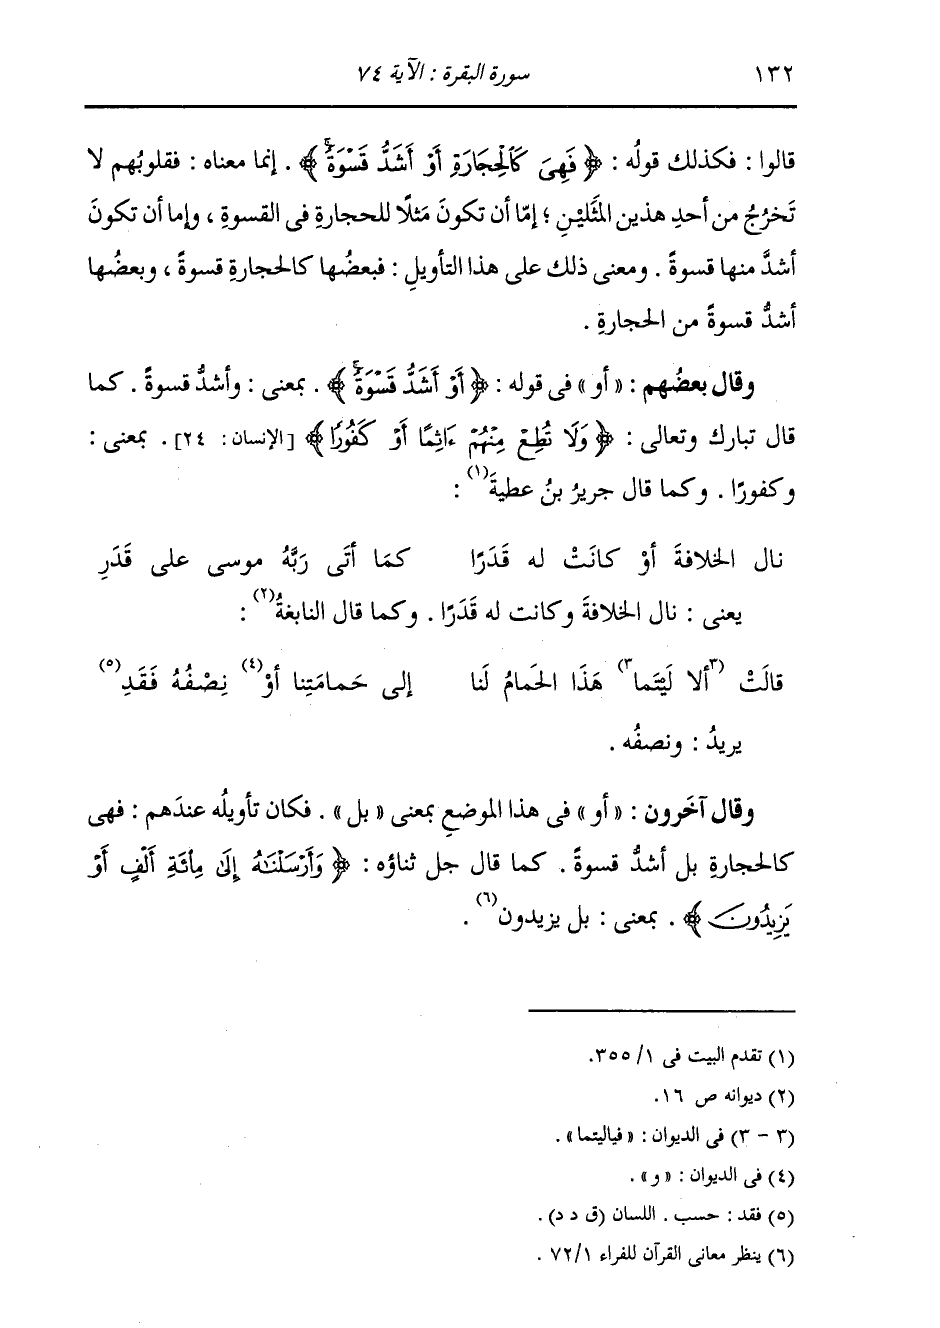 ١٣٢ سورة البقرة : الآية ٧٤
قالوا : فكذلك قولُه : ﴿ فَهِىَ كَٱلْحِجَارَةِ أَوْ أَشَدُّ قَسْوَةًۚ ﴾ . إنما معناه : فقلوبُهم لا
تَخرُجُ من أحدِ هذين المثَليْنِ ؛ إمّا أن تكونَ مَثلًا للحجارةِ فى القسوةِ ، وإما أن تكونَ
أشدَّ منها قسوةً . ومعنى ذلك على هذا التأويلِ : فبعضُها كالحجارةِ قسوةً ، وبعضُها
أشدُّ قسوةً من الحجارةِ .
وقال بعضُهم : « أو » فى قوله : ﴿ أَوْ أَشَدُّ قَسْوَةًۚ ﴾ . بمعنى : وأشدُّ قسوةً . كما
قال تبارك وتعالى : ﴿ وَلَا تُطِعْ مِنْهُمْ ءَاثِمًا أَوْ كَفُورًا ﴾ [الإنسان: ٢٤] . بمعنى :
وكفورًا . وكما قال جريرُ بنُ عطيةَ(١) :
نال الخلافةَ أوْ كانَتْ له قَدَرًا كمَا أتَى رَبَّهُ موسى على قَدَرِ
يعنى : نال الخلافةَ وكانت له قَدَرًا . وكما قال النابغةُ(٢) :
قالَتْ (٣ألا لَيْتَما٣) هَذَا الحَمامُ لَنا إلى حَمامَتِنا أوْ(٤) نِصْفُهُ فَقَدِ(٥)
يريدُ : ونصفُه .
وقال آخَرون : « أو » فى هذا الموضعِ بمعنى « بل » . فكان تأويلُه عندَهم : فهى
كالحجارةِ بل أشدُّ قسوةً . كما قال جل ثناؤه : ﴿ وَأَرْسَلْنَٰهُ إِلَىٰ مِا۟ئَةِ أَلْفٍ أَوْ
يَزِيدُونَ ﴾ . بمعنى : بل يزيدون(٦) .
(١) تقدم البيت فى ١/ ٣٥٥.
(٢) ديوانه ص ١٦.
(٣ - ٣) فى الديوان : « فياليتما » .
(٤) فى الديوان : « و » .
(٥) فقد : حسب . اللسان (ق د د) .
(٦) ينظر معانى القرآن للفراء ٧٢/١ .